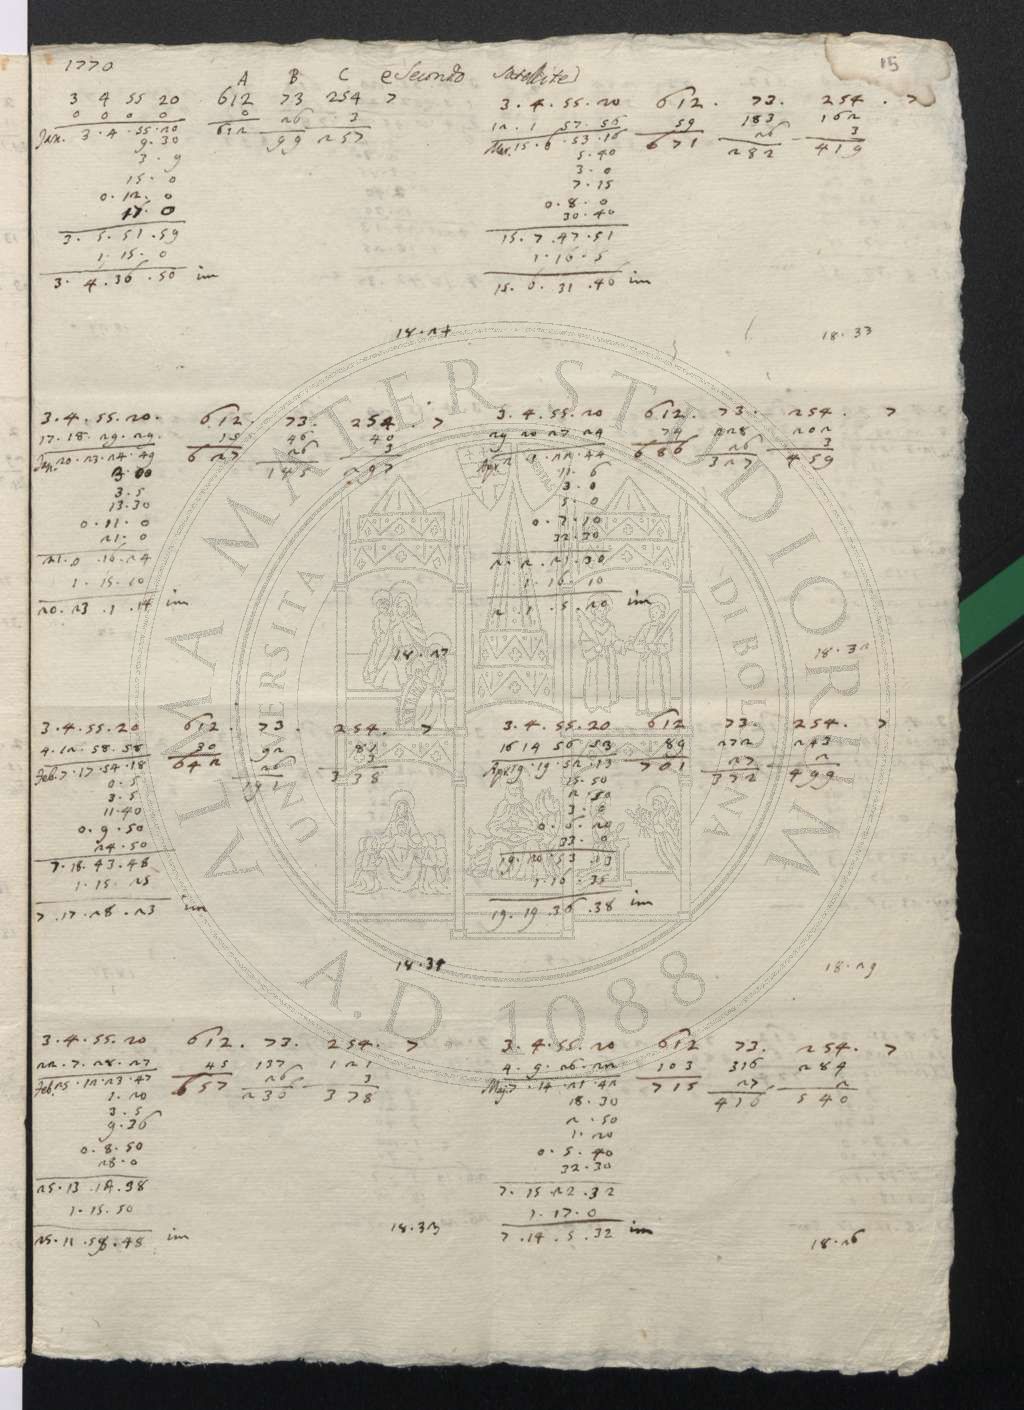 1770
A B C Secondo Satellite
15
3 4 55 20 612 73 254 7
0 0 0 0 0 26 3
Jan. 3. 4. 55. 20 612 99 257
9. 30
3. 9
15. 0
0. 12. 0
17. 0
3. 5. 51. 59
1. 15. 0
3. 4. 36. 50 im
18. 24
3. 4. 55. 20. 612. 73. 254. 7
17. 18. 29. 29. 15 46 40
26 3
Jan. 20. 23. 24. 49 627 145 297
3. 5
13. 30
0. 11. 0
21. 0
21. 0. 16. 24
1. 15. 10
20. 23. 1. 14 im
18. 27
3. 4. 55. 20 612. 73. 254. 7
4. 12. 58. 58 30 92 81
26 3
Feb. 7. 17. 54. 18 642 191 338
0. 5
3. 5
11. 40
0. 9. 50
24. 50
7. 18. 43. 48
1. 15. 25
7. 17. 28. 23 im
18. 34
3. 4. 55. 20 612. 73. 254. 7
22. 7. 28. 27 45 137 121
26 3
Feb. 25. 12. 23. 47 657 236 378
1. 20
3. 5
9. 36
0. 8. 50
28. 0
25. 13. 14. 38
1. 15. 50
25. 11. 58. 48 im
18. 33
3. 4. 55. 20 612. 73. 254. 7
12. 1. 57. 56 59 183 162
26 3
Mar. 15. 6. 53. 16 671 282 419
5. 40
3. 0
7. 15
0. 8. 0
30. 40
15. 7. 47. 51
1. 16. 5
15. 6. 31. 40 im
18. 33
3. 4. 55. 20 612. 73. 254. 7
29 20 27 24 74 228 202
26 3
Apr. 2. 1. 22. 44 686 327 459
11. 6
3. 0
5. 0
0. 7. 10
32. 30
2. 2. 21. 30
1. 16. 10
2. 1. 5. 20 im
18. 32
3. 4. 55. 20 612 73. 254. 7
16 14 56 53 89 272 243
27 2
Apr. 19. 19. 52. 13 701 372 499
15. 50
2. 50
3. 0
0. 6. 20
33. 0
19. 20. 53. 13
1. 16. 35
19. 19. 36. 38 im
18. 29
3. 4. 55. 20 612 73. 254. 7
4. 9. 26. 22 103 316 284
27 2
Maj. 7. 14. 21. 42 715 416 540
18. 30
2. 50
1. 20
0. 5. 40
32. 30
7. 15. 22. 32
1. 17. 0
7. 14. 5. 32 im
18. 26
ALMA MATER STUDIORUM
UNIVERSITA DI BOLOGNA
A.D. 1088